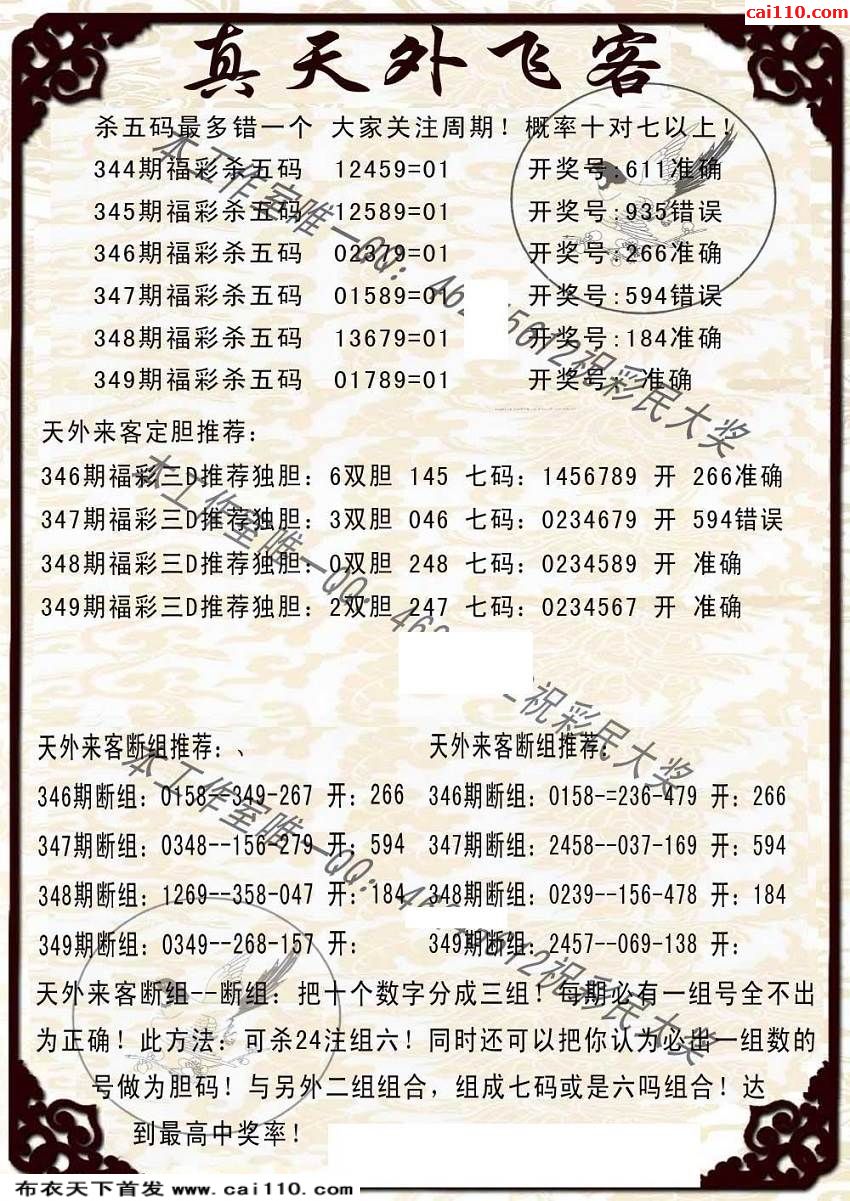 cai110.com
真天外飞客
杀五码最多错一个 大家关注周期！概率十对七以上！
344期福彩杀五码 12459=01 开奖号:611准确
345期福彩杀五码 12589=01 开奖号:935错误
346期福彩杀五码 02379=01 开奖号:266准确
347期福彩杀五码 01589=01 开奖号:594错误
348期福彩杀五码 13679=01 开奖号:184准确
349期福彩杀五码 01789=01 开奖号: 准确
天外来客定胆推荐：
346期福彩三D推荐独胆：6双胆 145 七码：1456789 开 266准确
347期福彩三D推荐独胆：3双胆 046 七码：0234679 开 594错误
348期福彩三D推荐独胆：0双胆 248 七码：0234589 开 准确
349期福彩三D推荐独胆：2双胆 247 七码：0234567 开 准确
天外来客断组推荐：、 天外来客断组推荐：
346期断组：0158--349-267 开：266 346期断组：0158-=236-479 开：266
347期断组：0348--156-279 开：594 347期断组：2458--037-169 开：594
348期断组：1269--358-047 开：184 348期断组：0239--156-478 开：184
349期断组：0349--268-157 开： 349期断组：2457--069-138 开：
天外来客断组--断组：把十个数字分成三组！每期必有一组号全不出
为正确！此方法：可杀24注组六！同时还可以把你认为必出一组数的
号做为胆码！与另外二组组合，组成七码或是六吗组合！达
到最高中奖率！
本工作室唯一QQ：46 5612祝彩民大奖
本工作室唯一QQ：46 祝彩民大奖
本工作室唯一QQ：46 5612祝彩民大奖
布衣天下首发 www.cai110.com